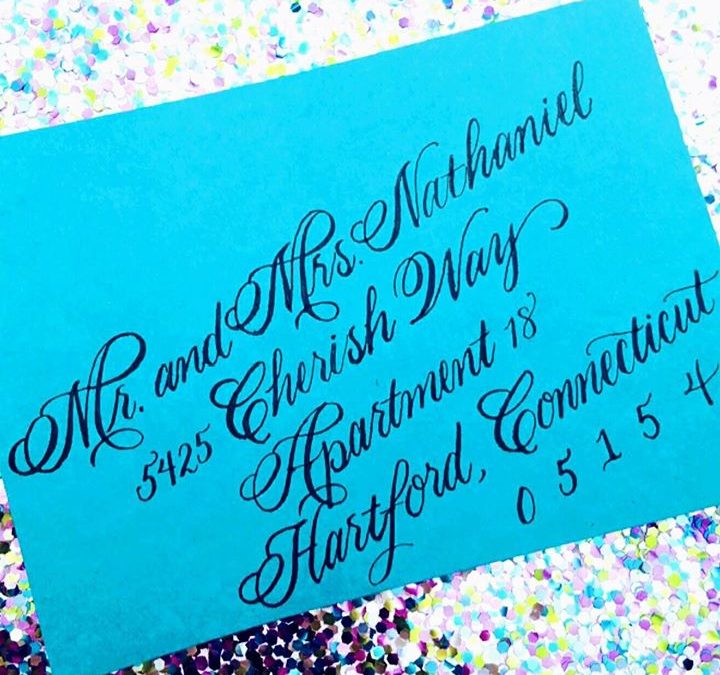 Mr. and Mrs. Nathaniel
5425 Cherish Way
Apartment 18
Hartford, Connecticut
0 5 1 5 4